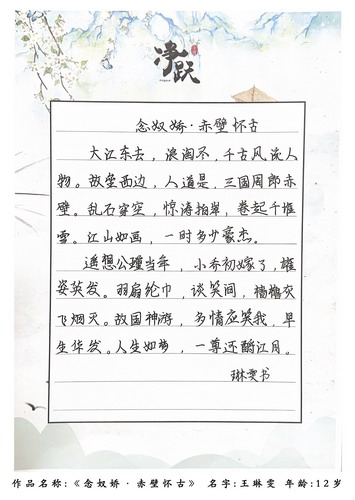 净跃
念奴娇·赤壁怀古
大江东去，浪淘不，千古风流人
物。故垒西边，人道是，三国周郎赤
壁。乱石穿空，惊涛拍岸，卷起千堆
雪。江山如画，一时多少豪杰。
遥想公瑾当年，小乔初嫁了，雄
姿英发。羽扇纶巾，谈笑间，樯橹灰
飞烟灭。故国神游，多情应笑我，早
生华发。人生如梦，一尊还酹江月。
琳雯书
作品名称:《念奴娇·赤壁怀古》 名字:王琳雯 年龄:12岁